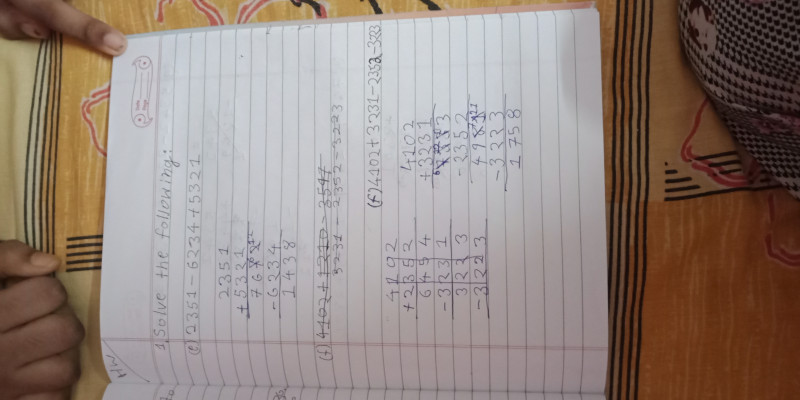 H.W
1. Solve the following:
(e) 2351-6234+5321
2351
+5321
7672
-6234
1438
(f) 4102+1210-3544
3231-2352-3223
(f) 4102+3231-2352-3223
4102
+2352
6454
-3231
3223
-3223
4102
+3231
7333
-2352
4981
-3223
1758